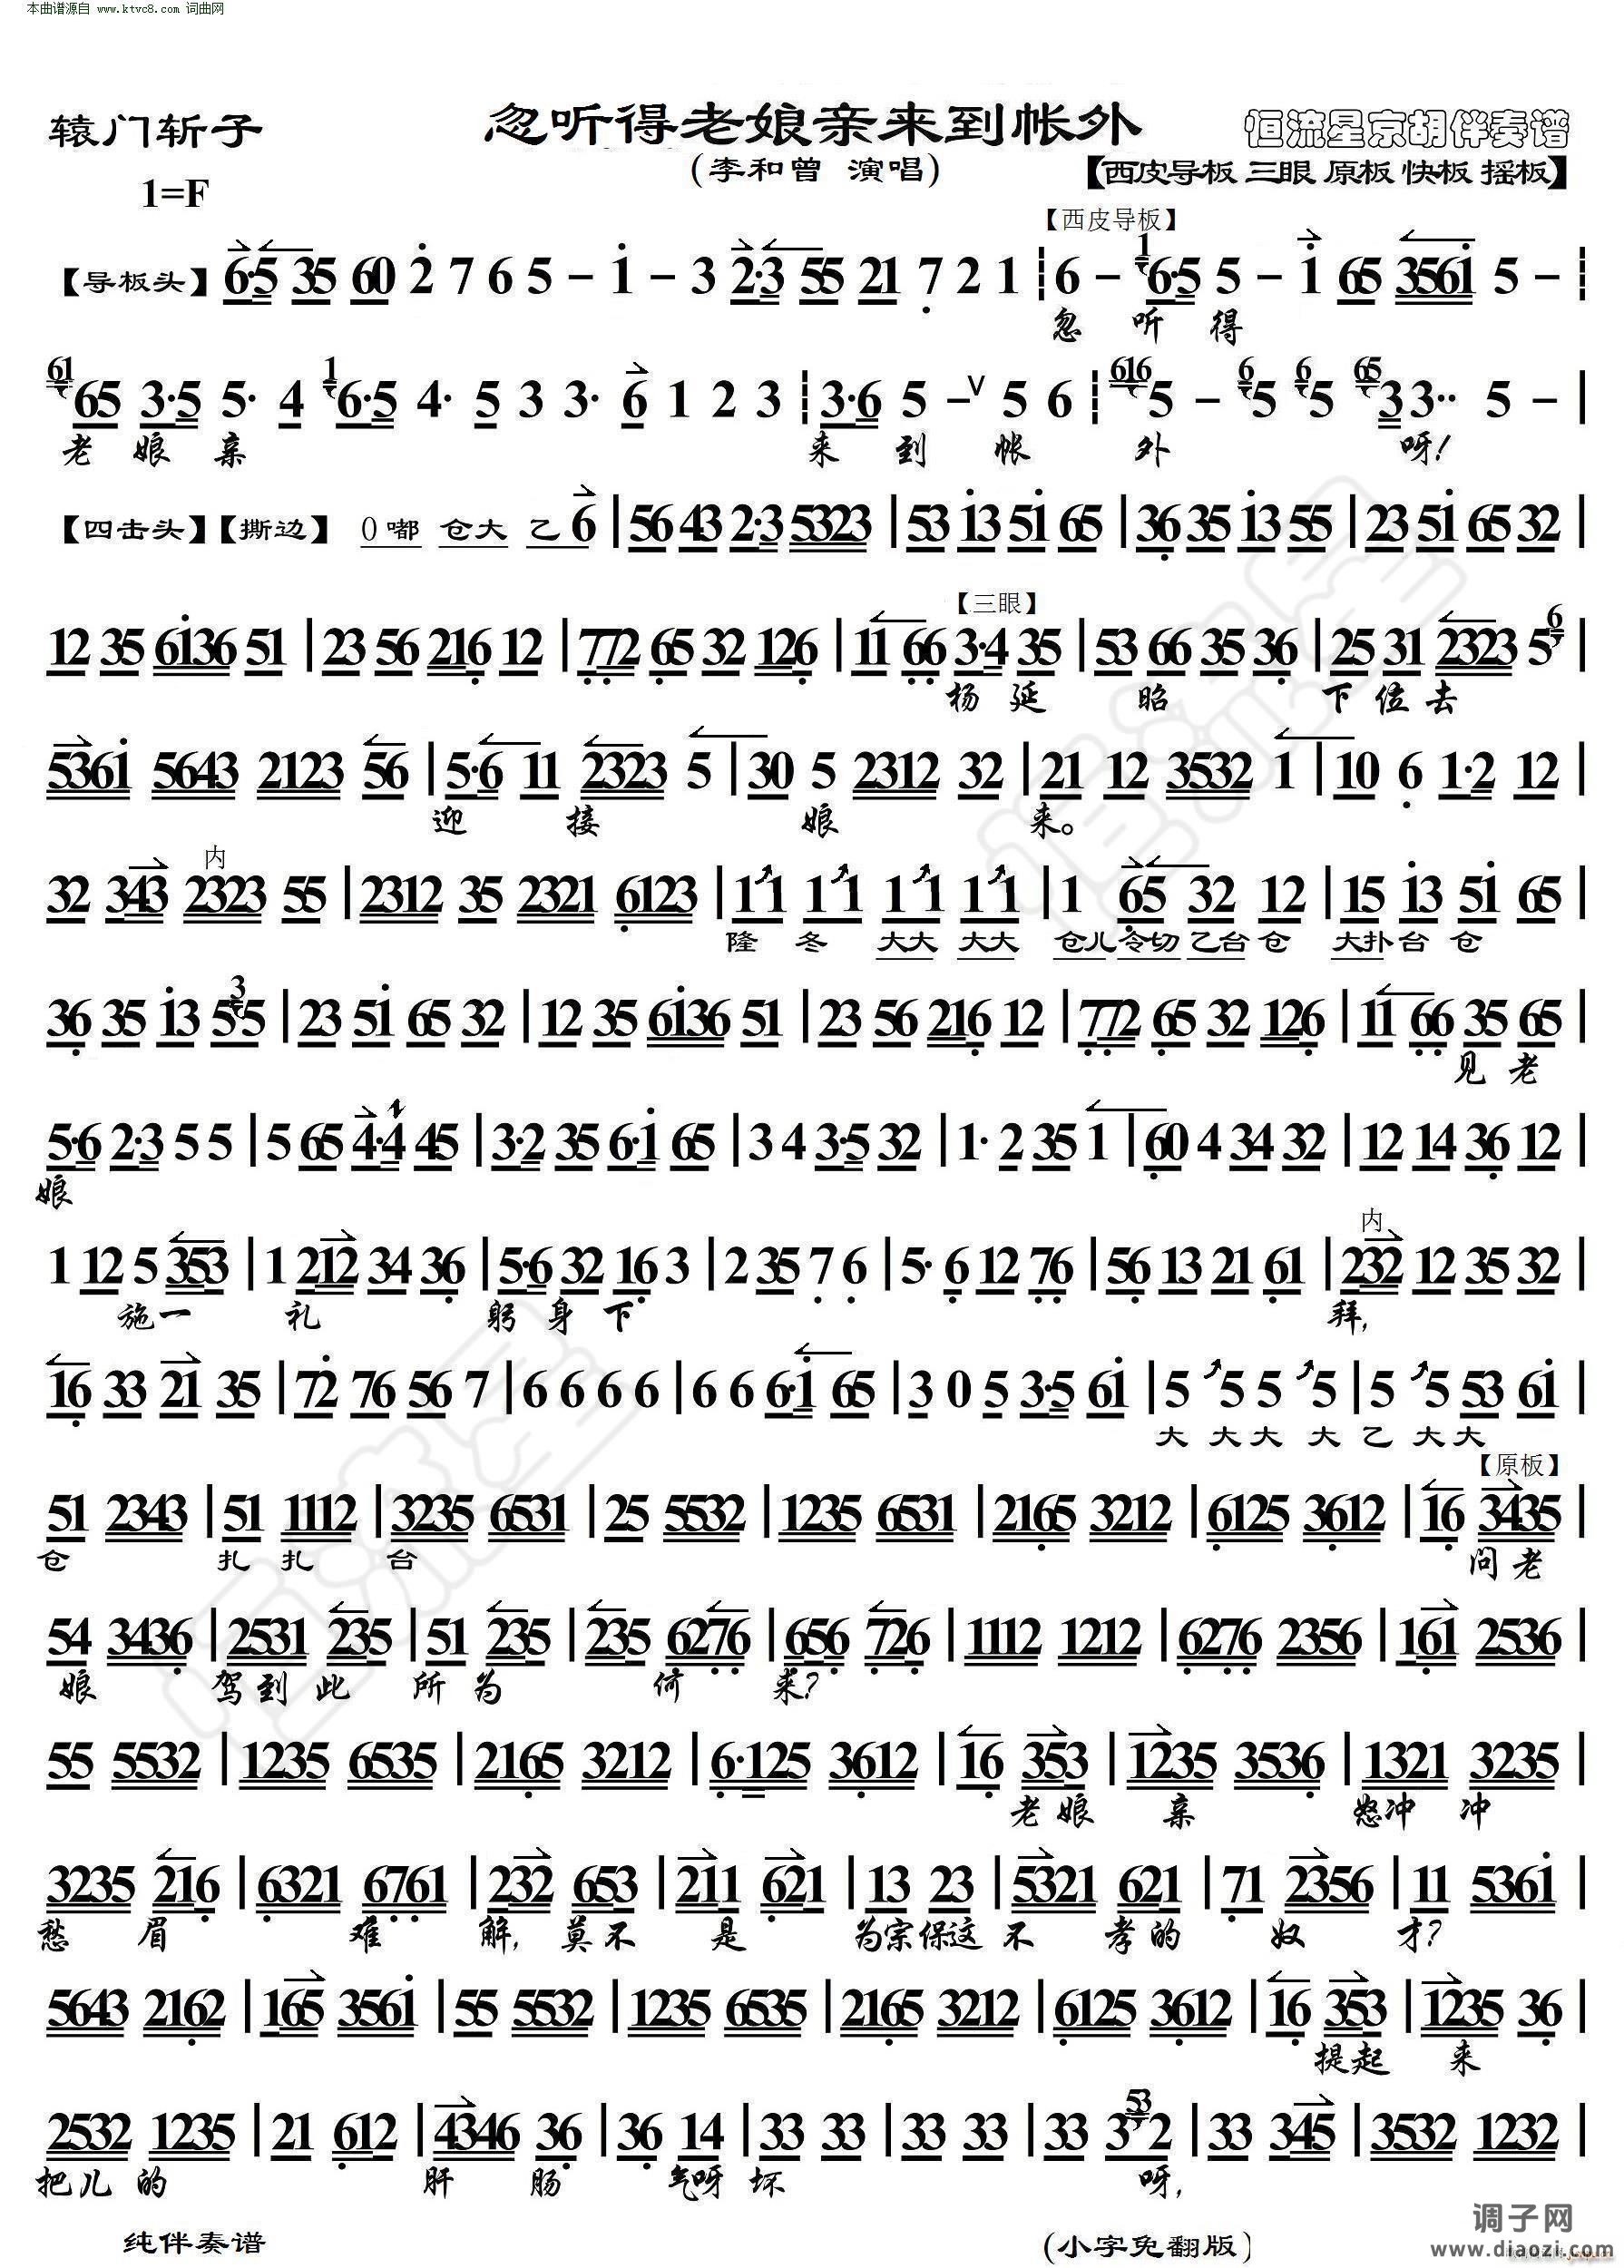 本曲谱源自 www.ktvc8.com 词曲网
辕门斩子
忽听得老娘亲来到帐外
恒流星京胡伴奏谱
(李和曾 演唱)
【西皮导板 三眼 原板 快板 摇板】
1=F
【西皮导板】
【导板头】 6·5 35 60 2 7 6 5 - 1 - 3 2·3 55 21 7 2 1 ┋ 6 - 1 6·5 5 - 1 65 3561 5 - ┋
忽 听 得
61 65 3·5 5· 4 1 6·5 4· 5 3 3· 6 1 2 3 ┋ 3·6 5 - ∨ 5 6 ┋ 616 5 - 6 5 6 5 65 3 3·· 5 - |
老 娘 亲 来 到 帐 外 呀!
【四击头】【撕边】 0 嘟 仓大 乙 6 | 56 43 2·3 5323 | 53 13 51 65 | 36 35 13 55 | 23 51 65 32 |
【三眼】
12 35 6136 51 | 23 56 216 12 | 772 65 32 126 | 11 66 3·4 35 | 53 66 35 36 | 25 31 2323 5 6 |
杨 延 昭 下 位 去
5361 5643 2123 56 | 5·6 11 2323 5 | 30 5 2312 32 | 21 12 3532 1 | 10 6 1·2 12 |
迎 接 娘 来。
内
32 343 2323 55 | 2312 35 2321 6123 | 11 11 11 11 | 1 65 32 12 | 15 13 51 65 |
隆 冬 大大 大大 仓儿 令切 乙台 仓 大扑 台 仓
36 35 13 5 3 5 | 23 51 65 32 | 12 35 6136 51 | 23 56 216 12 | 772 65 32 126 | 11 66 35 65 |
见 老
5·6 2·3 5 5 | 5 65 4·4 45 | 3·2 35 6·1 65 | 3 4 3·5 32 | 1· 2 35 1 | 60 4 34 32 | 12 14 36 12 |
娘
内
1 12 5 353 | 1 212 34 36 | 5·6 32 16 3 | 2 35 7 6 | 5· 6 12 76 | 56 13 21 61 | 232 12 35 32 |
施一 礼 躬 身 下 拜,
16 33 21 35 | 72 76 56 7 | 6 6 6 6 | 6 6 6·1 65 | 3 0 5 3·5 61 | 5 5 5 5 | 5 5 53 61 |
大 大 大 大 乙 大 大
【原板】
51 2343 | 51 1112 | 3235 6531 | 25 5532 | 1235 6531 | 2165 3212 | 6125 3612 | 16 3435 |
仓 扎 扎 台 问 老
54 3436 | 2531 235 | 51 235 | 235 6276 | 656 726 | 1112 1212 | 6276 2356 | 161 2536 |
娘 驾 到 此 所 为 何 来?
55 5532 | 1235 6535 | 2165 3212 | 6·125 3612 | 16 353 | 1235 3536 | 1321 3235 |
老 娘 亲 怒 冲 冲
3235 216 | 6321 6761 | 232 653 | 211 621 | 13 23 | 5321 621 | 71 2356 | 11 5361 |
愁 眉 难 解, 莫 不 是 为宗保这 不 孝 的 奴 才?
5643 2162 | 165 3561 | 55 5532 | 1235 6535 | 2165 3212 | 6125 3612 | 16 353 | 1235 36 |
提 起 来
2532 1235 | 21 612 | 4346 36 | 36 14 | 33 33 | 33 33 | 33 3 53 2 | 33 345 | 3532 1232 |
把 儿 的 肝 肠 气呀 坏 呀,
纯伴奏谱
(小字免翻版)
调子网
www.diaozi.com